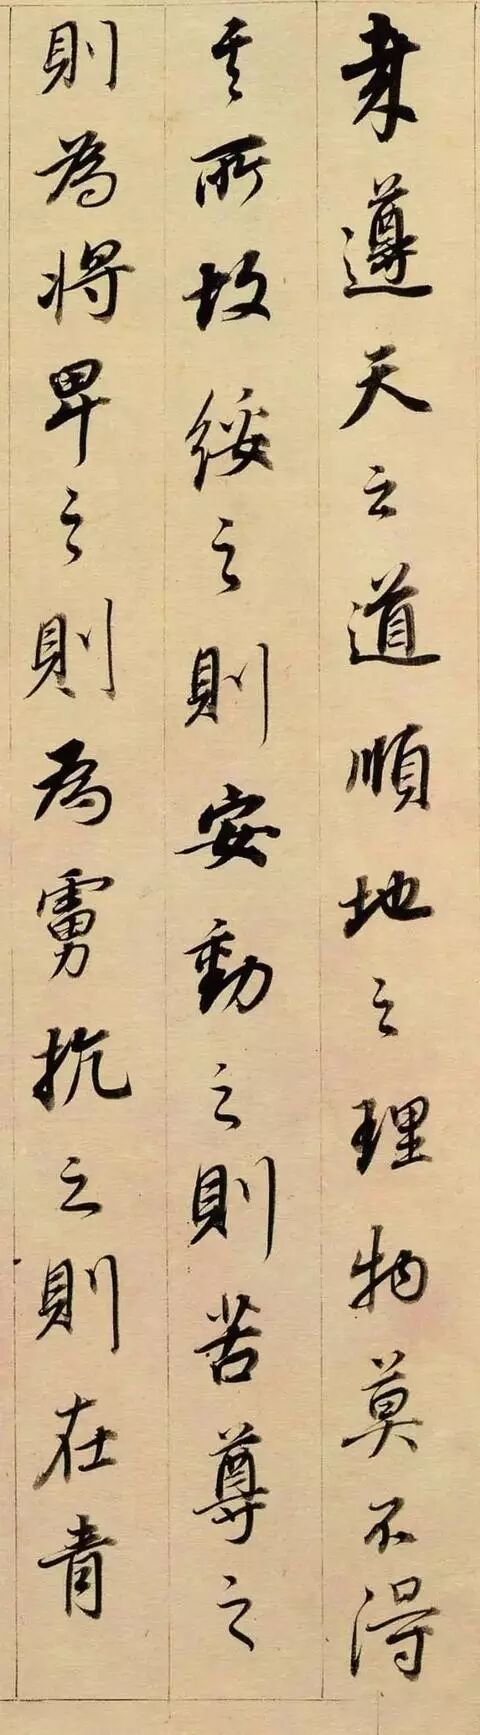 聿遵天之道順地之理物莫不得
其所故綏之則安動之則苦尊之
則為將卑之則為虜抗之則在青